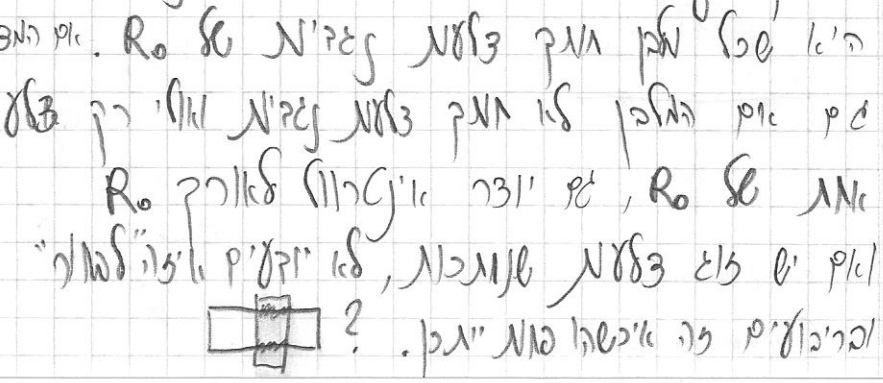 היא שכל מלבן חותך צלעות נגדיות של R₀. אם המצ
גם אם המלבן לא חותך צלעות נגדיות ואולי רק צלע
אחת של R₀, גם יוצר אינטרוול לאורך R₀
ואם יש זוג צלעות שנחתכות, לא יודעים איזה "לבחור"
ובריבועים זה איכשהו פחות ייתכן. ?